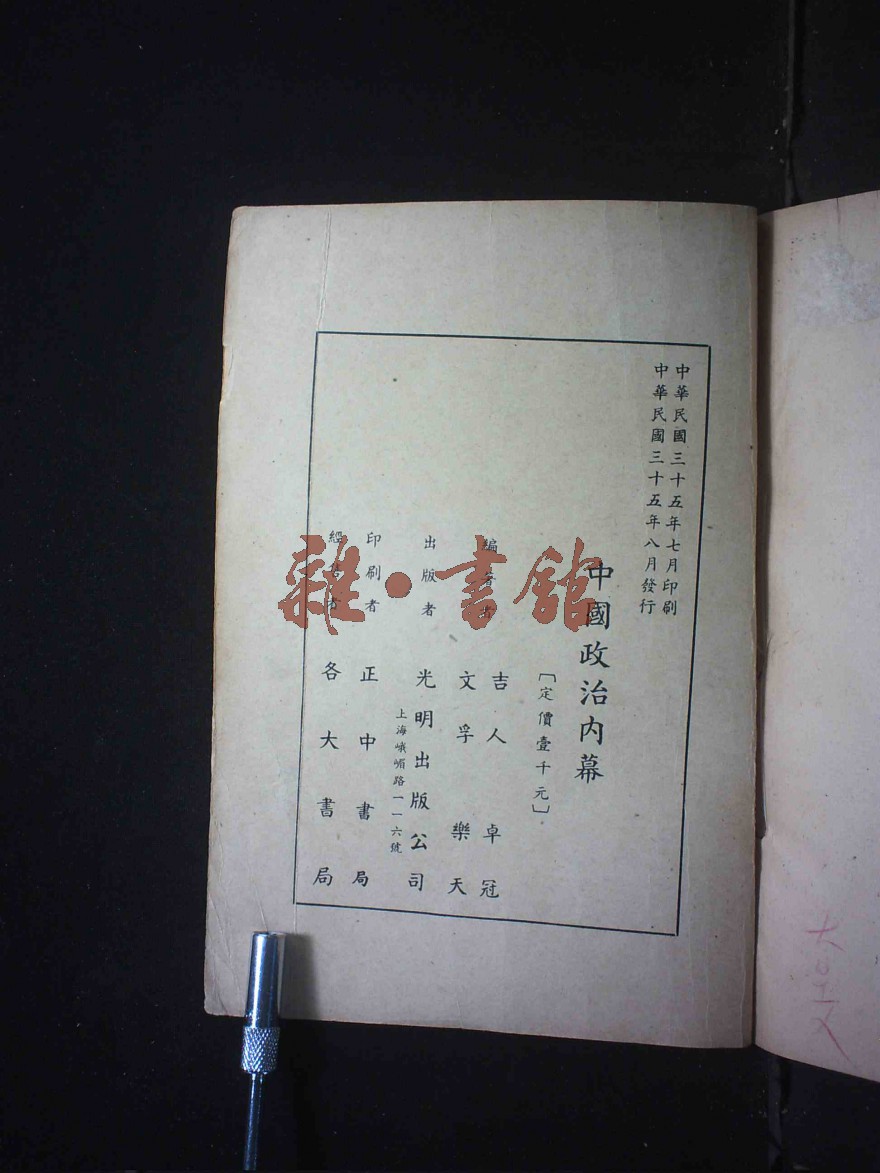 中華民國三十五年七月印刷
中華民國三十五年八月發行
中國政治內幕
［定價壹千元］
編著者
吉人 卓冠
文孚 樂天
出版者 光明出版公司
上海峨嵋路一一六號
印刷者 正中書局
經售者 各大書局
雜·書館